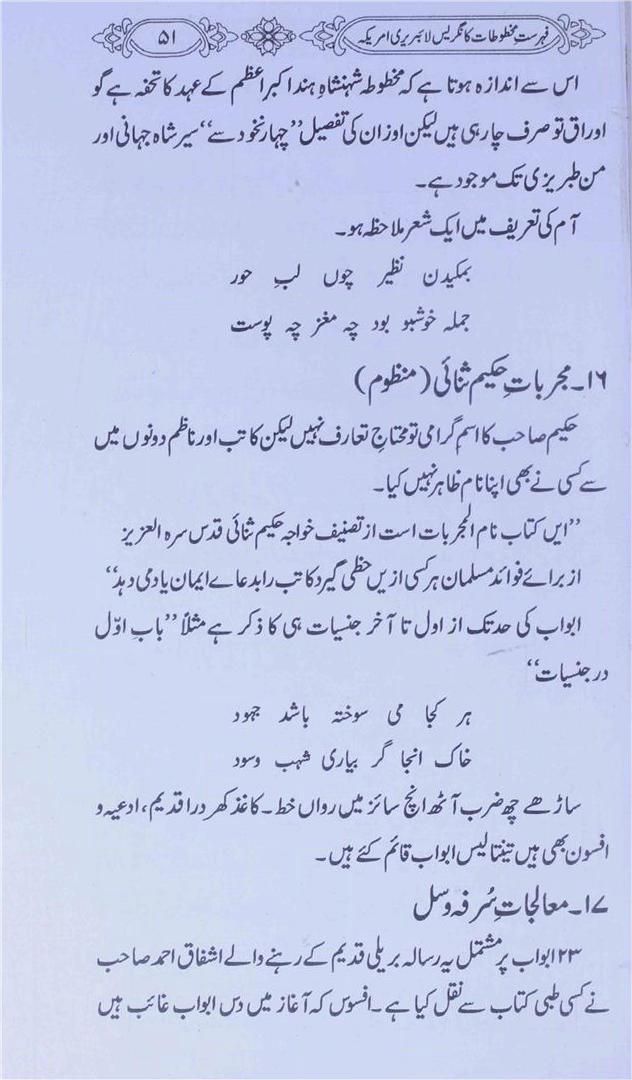 فہرستِ مخطوطات کانگریس لائبریری امریکہ
۵۱
اس سے اندازہ ہوتا ہے کہ مخطوطہ شہنشاہِ ہند اکبر اعظم کے عہد کا تحفہ ہے گو
اوراق تو صرف چار ہی ہیں لیکن اوزان کی تفصیل ”چہار نخود سے“ سیر شاہ جہانی اور
من طبریزی تک موجود ہے۔
آم کی تعریف میں ایک شعر ملاحظہ ہو۔
بمکیدن نظیر چوں لبِ حور
جملہ خوشبو بود چہ مغز چہ پوست
۱۶۔ مجرباتِ حکیم ثنائی (منظوم)
حکیم صاحب کا اسمِ گرامی تو محتاجِ تعارف نہیں لیکن کاتب اور ناظم دونوں میں
سے کسی نے بھی اپنا نام ظاہر نہیں کیا۔
”ایں کتاب نام المجربات است از تصنیف خواجہ حکیم ثنائی قدس سرہ العزیز
از برائے فوائد مسلمان ہر کسی ازیں حظی گیرد کاتب را بدعاے ایمان یاد می دہد“
ابواب کی حد تک از اول تا آخر جنسیات ہی کا ذکر ہے مثلاً ”بابِ اوّل
در جنسیات“
ہر کجا می سوختہ باشد جہود
خاک انجا گر بیاری شہب وسود
ساڑھے چھ ضرب آٹھ انچ سائز میں رواں خط۔ کاغذ کھردرا قدیم، ادعیہ و
افسون بھی ہیں تینتالیس ابواب قائم کئے ہیں۔
۱۷۔ معالجاتِ سُرفہ وسل
۲۳ ابواب پر مشتمل یہ رسالہ بریلی قدیم کے رہنے والے اشفاق احمد صاحب
نے کسی طبی کتاب سے نقل کیا ہے۔ افسوس کہ آغاز میں دس ابواب غائب ہیں